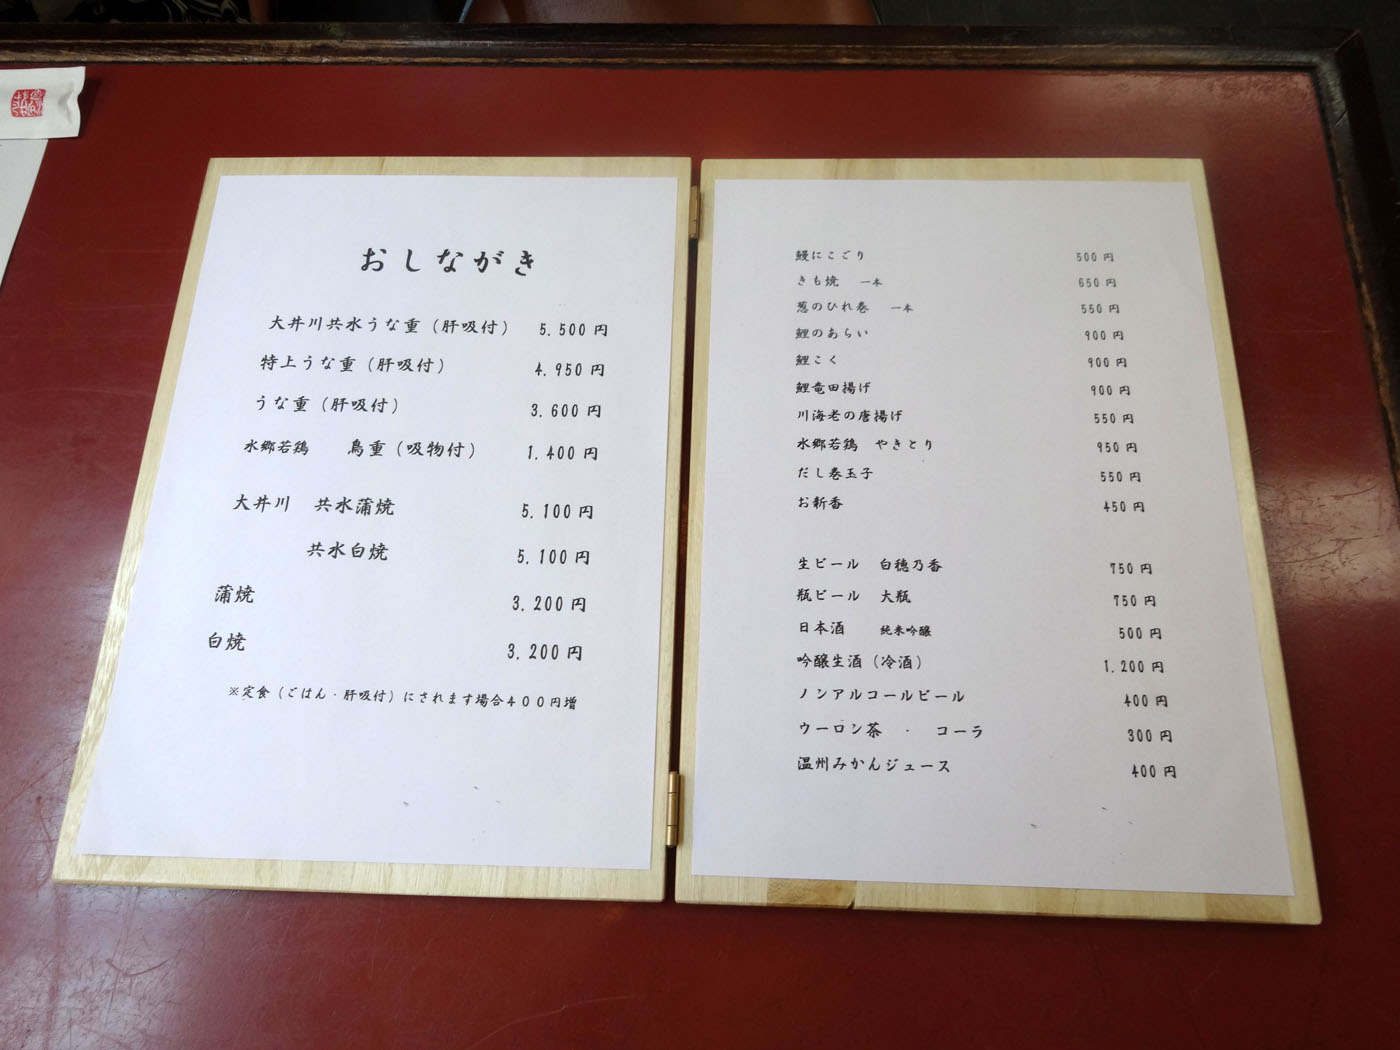 おしながき
大井川共水うな重（肝吸付） 5.500円
特上うな重（肝吸付） 4.950円
うな重（肝吸付） 3.600円
水郷若鶏 鳥重（吸物付） 1.400円
大井川 共水蒲焼 5.100円
共水白焼 5.100円
蒲焼 3.200円
白焼 3.200円
※定食（ごはん・肝吸付）にされます場合４００円増
鰻にこごり 500円
きも焼 一本 650円
葱のひれ巻 一本 550円
鯉のあらい 900円
鯉こく 900円
鯉竜田揚げ 900円
川海老の唐揚げ 550円
水郷若鶏 やきとり 950円
だし巻玉子 550円
お新香 450円
生ビール 白穂乃香 750円
瓶ビール 大瓶 750円
日本酒 純米吟醸 500円
吟醸生酒（冷酒） 1.200円
ノンアルコールビール 400円
ウーロン茶 ・ コーラ 300円
温州みかんジュース 400円